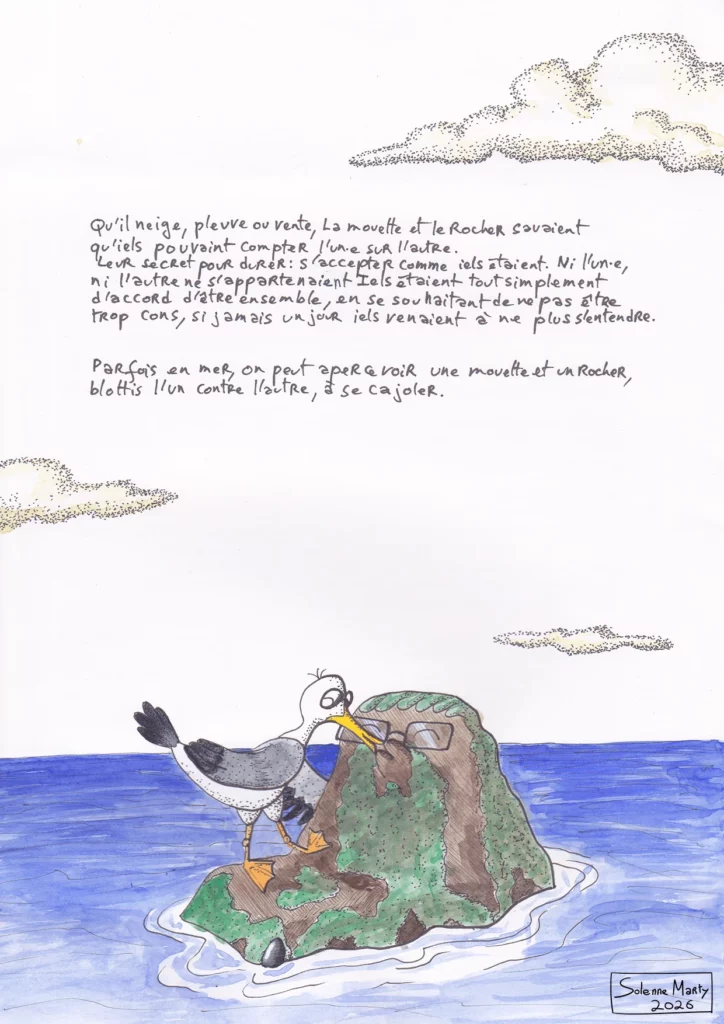 Qu'il neige, pleuve ou vente, La mouette et le Rocher savaient
qu'iels pouvaint compter l'un·e sur l'autre.
Leur secret pour durer : s'accepter comme iels étaient. Ni l'un·e,
ni l'autre ne s'appartenaient Iels étaient tout simplement
d'accord d'être ensemble, en se souhaitant de ne pas être
trop cons, si jamais un jour iels venaient à ne plus s'entendre.
Parfois en mer, on peut apercevoir une mouette et un Rocher,
blottis l'un contre l'autre, à se cajoler.
Solenne Marty
2026